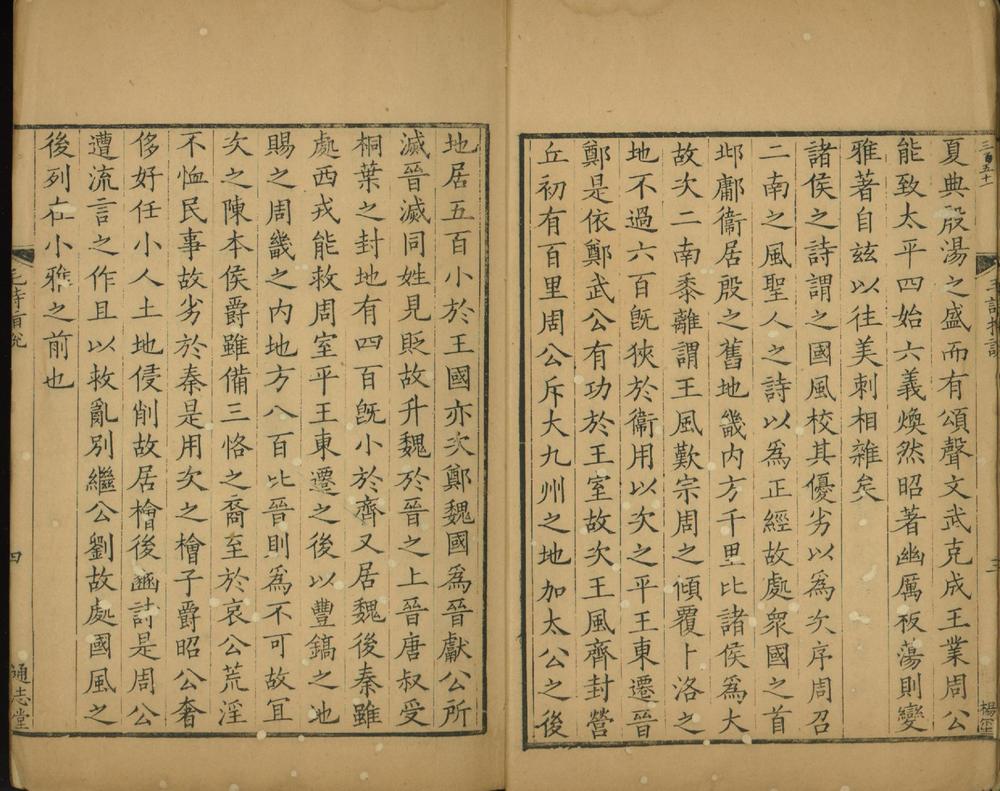 三百五十
毛詩指說
三
楊
夏典殷湯之盛而有頌聲文武克成王業周公
能致太平四始六義煥然昭著幽厲板蕩則變
雅著自兹以往美刺相雜矣
諸侯之詩謂之國風校其優劣以爲次序周召
二南之風聖人之詩以爲正經故處衆國之首
邶鄘衞居殷之舊地畿内方千里比諸侯爲大
故次二南黍離謂王風歎宗周之傾覆卜洛之
地不過六百旣狹於衞用以次之平王東遷晉
鄭是依鄭武公有功於王室故次王風齊封營
丘初有百里周公斥大九州之地加太公之後
地居五百小於王國亦次鄭魏國爲晉獻公所
滅晉滅同姓見貶故升魏於晉之上晉唐叔受
桐葉之封地有四百旣小於齊又居魏後秦雖
處西戎能救周室平王東遷之後以豐鎬之地
賜之周畿之内地方八百比晉則爲不可故冝
次之陳本侯爵雖備三恪之裔至於哀公荒淫
不恤民事故劣於秦是用次之檜子爵昭公奢
侈好任小人土地侵削故居檜後豳詩是周公
遭流言之作且以救亂別繼公劉故處國風之
後列在小雅之前也
毛詩指說
四
通志堂